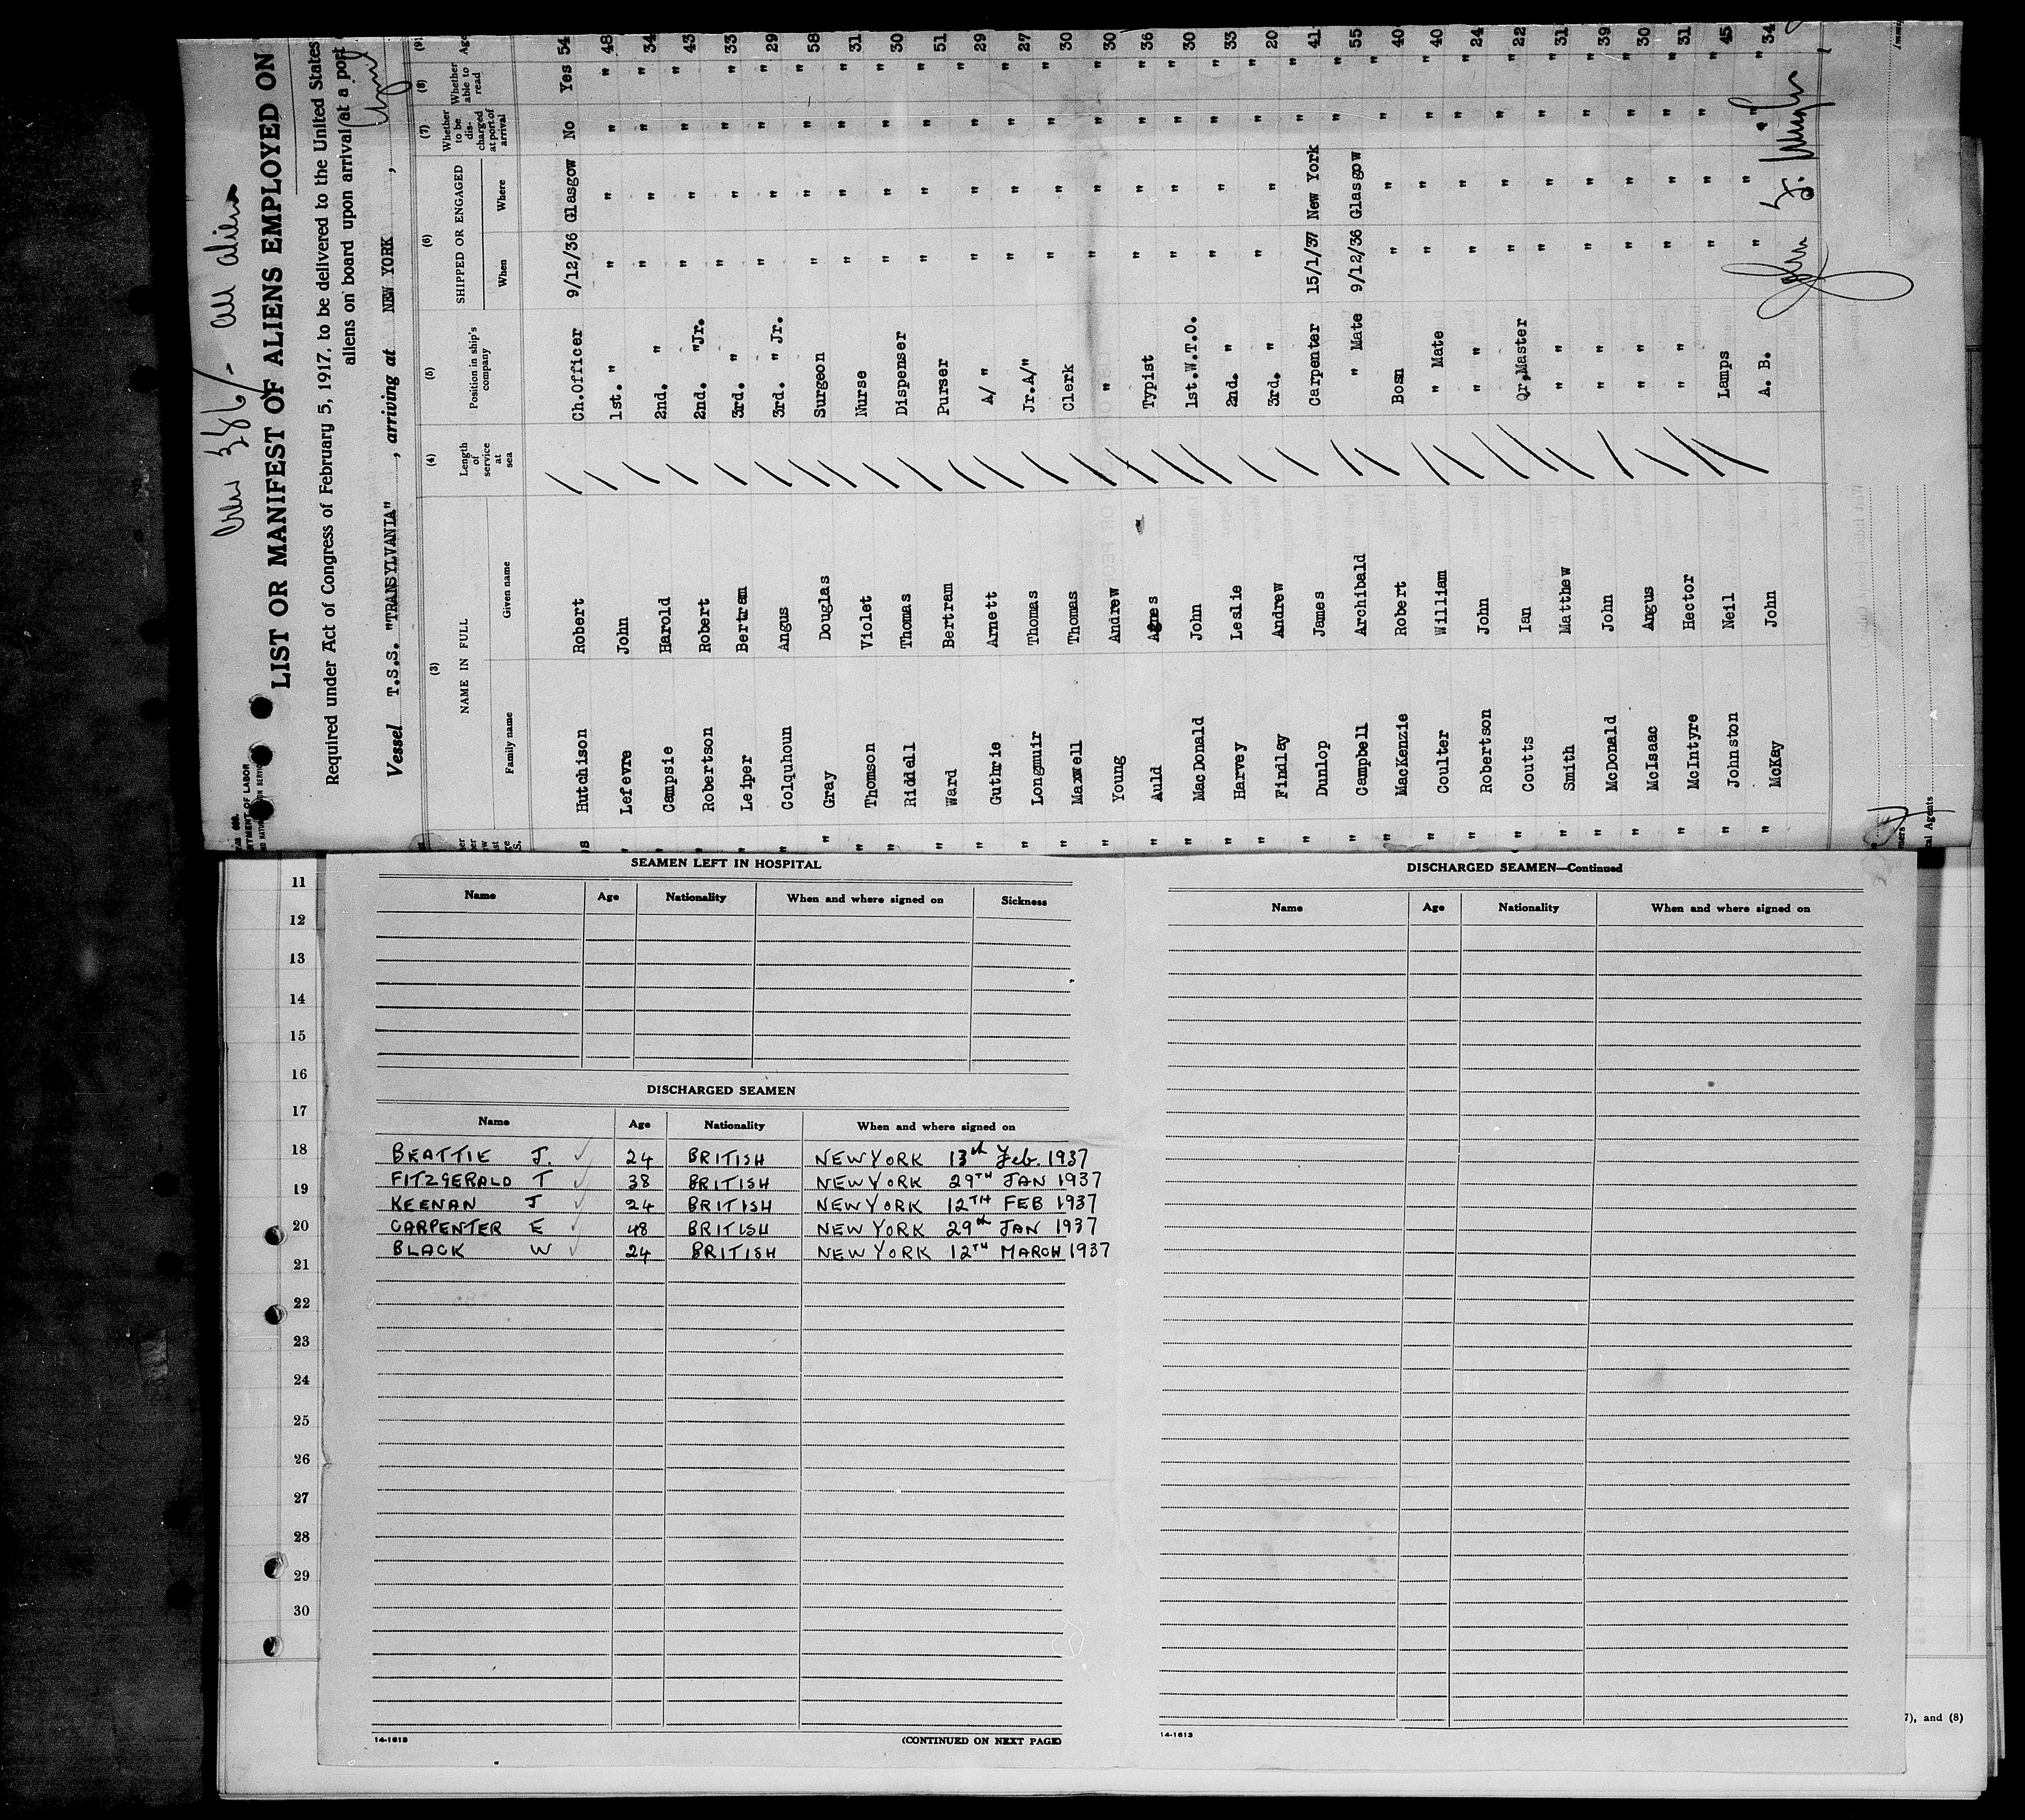 Crew 386 - All aliens
LIST OR MANIFEST OF ALIENS EMPLOYED ON
Required under Act of Congress of February 5, 1917, to be delivered to the United States
aliens on board upon arrival at a port
Vessel T.S.S. "TRANSYLVANIA" , arriving at NEW YORK ,
(3) (4) (5) (6) (7) (8) (9)
NAME IN FULL Length of service at sea Position in ship's company SHIPPED OR ENGAGED Whether to be discharged at port of arrival Whether able to read Age
Family name Given name When Where
Hutchison Robert Ch.Officer 9/12/36 Glasgow No Yes 54
Lefevre John 1st. " " " " " 48
Campsie Harold 2nd. " " " " " 34
Robertson Robert 2nd. "Jr. " " " " 43
Leiper Bertram 3rd. " " " " " 33
Colquhoun Angus 3rd. " Jr. " " " " 29
" Gray Douglas Surgeon " " " " 58
" Thomson Violet Nurse " " " " 31
" Riddell Thomas Dispenser " " " " 30
" Ward Bertram Purser " " " " 51
" Guthrie Arnett A/ " " " " " 29
" Longmuir Thomas Jr.A/" " " " " 27
" Maxwell Thomas Clerk " " " " 30
" Young Andrew " " " " " 30
" Auld Agnes Typist " " " " 36
" MacDonald John 1st.W.T.O. " " " " 30
" Harvey Leslie 2nd. " " " " " 33
" Findlay Andrew 3rd. " " " " " 20
" Dunlop James Carpenter 15/1/37 New York " " 41
" Campbell Archibald " Mate 9/12/36 Glasgow " " 55
" MacKenzie Robert Bosn " " " " 40
" Coulter William " Mate " " " " 40
" Robertson John " " " " " " 24
" Coutts Ian Qr.Master " " " " 22
" Smith Matthew " " " " " " 31
" McDonald John " " " " " " 39
" McIsaac Angus " " " " " " 30
" McIntyre Hector " " " " " " 31
" Johnston Neil Lamps " " " " 45
" McKay John A. B. " " " " 34
SEAMEN LEFT IN HOSPITAL
Name Age Nationality When and where signed on Sickness
DISCHARGED SEAMEN
Name Age Nationality When and where signed on
BEATTIE J. 24 BRITISH NEW YORK 13th Feb. 1937
FITZGERALD T 38 BRITISH NEW YORK 29TH JAN 1937
KEENAN J 24 BRITISH NEW YORK 12TH FEB 1937
CARPENTER E 48 BRITISH NEW YORK 29th JAN 1937
BLACK W 24 BRITISH NEW YORK 12TH MARCH 1937
14-1613 (CONTINUED ON NEXT PAGE)
DISCHARGED SEAMEN—Continued
Name Age Nationality When and where signed on
14-1613
11
12
13
14
15
16
17
18
19
20
21
22
23
24
25
26
27
28
29
30
7), and (8)